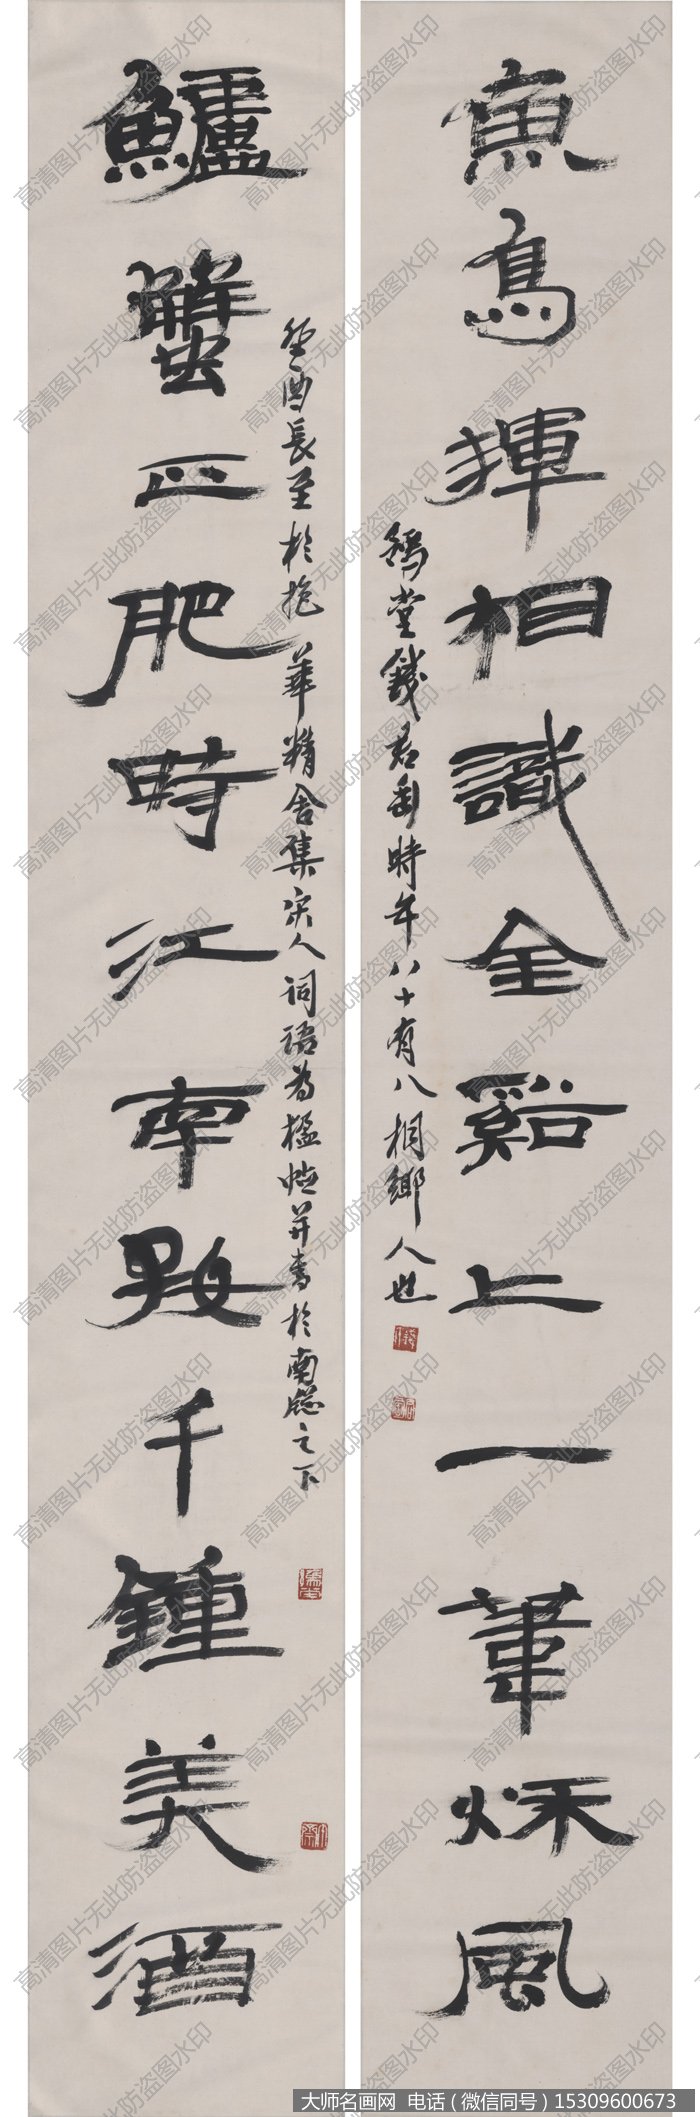 魚鳥渾相識全谿上一葦秌風
豫堂錢君匋時年八十有八桐鄉人也
鱸蟹正肥時江南好千鍾美酒
癸酉長至於抱華精舍集宋人詞語為楹帖并書於南窓之下
高清图片无此防盗图水印
大师名画网 电话（微信同号）15309600673